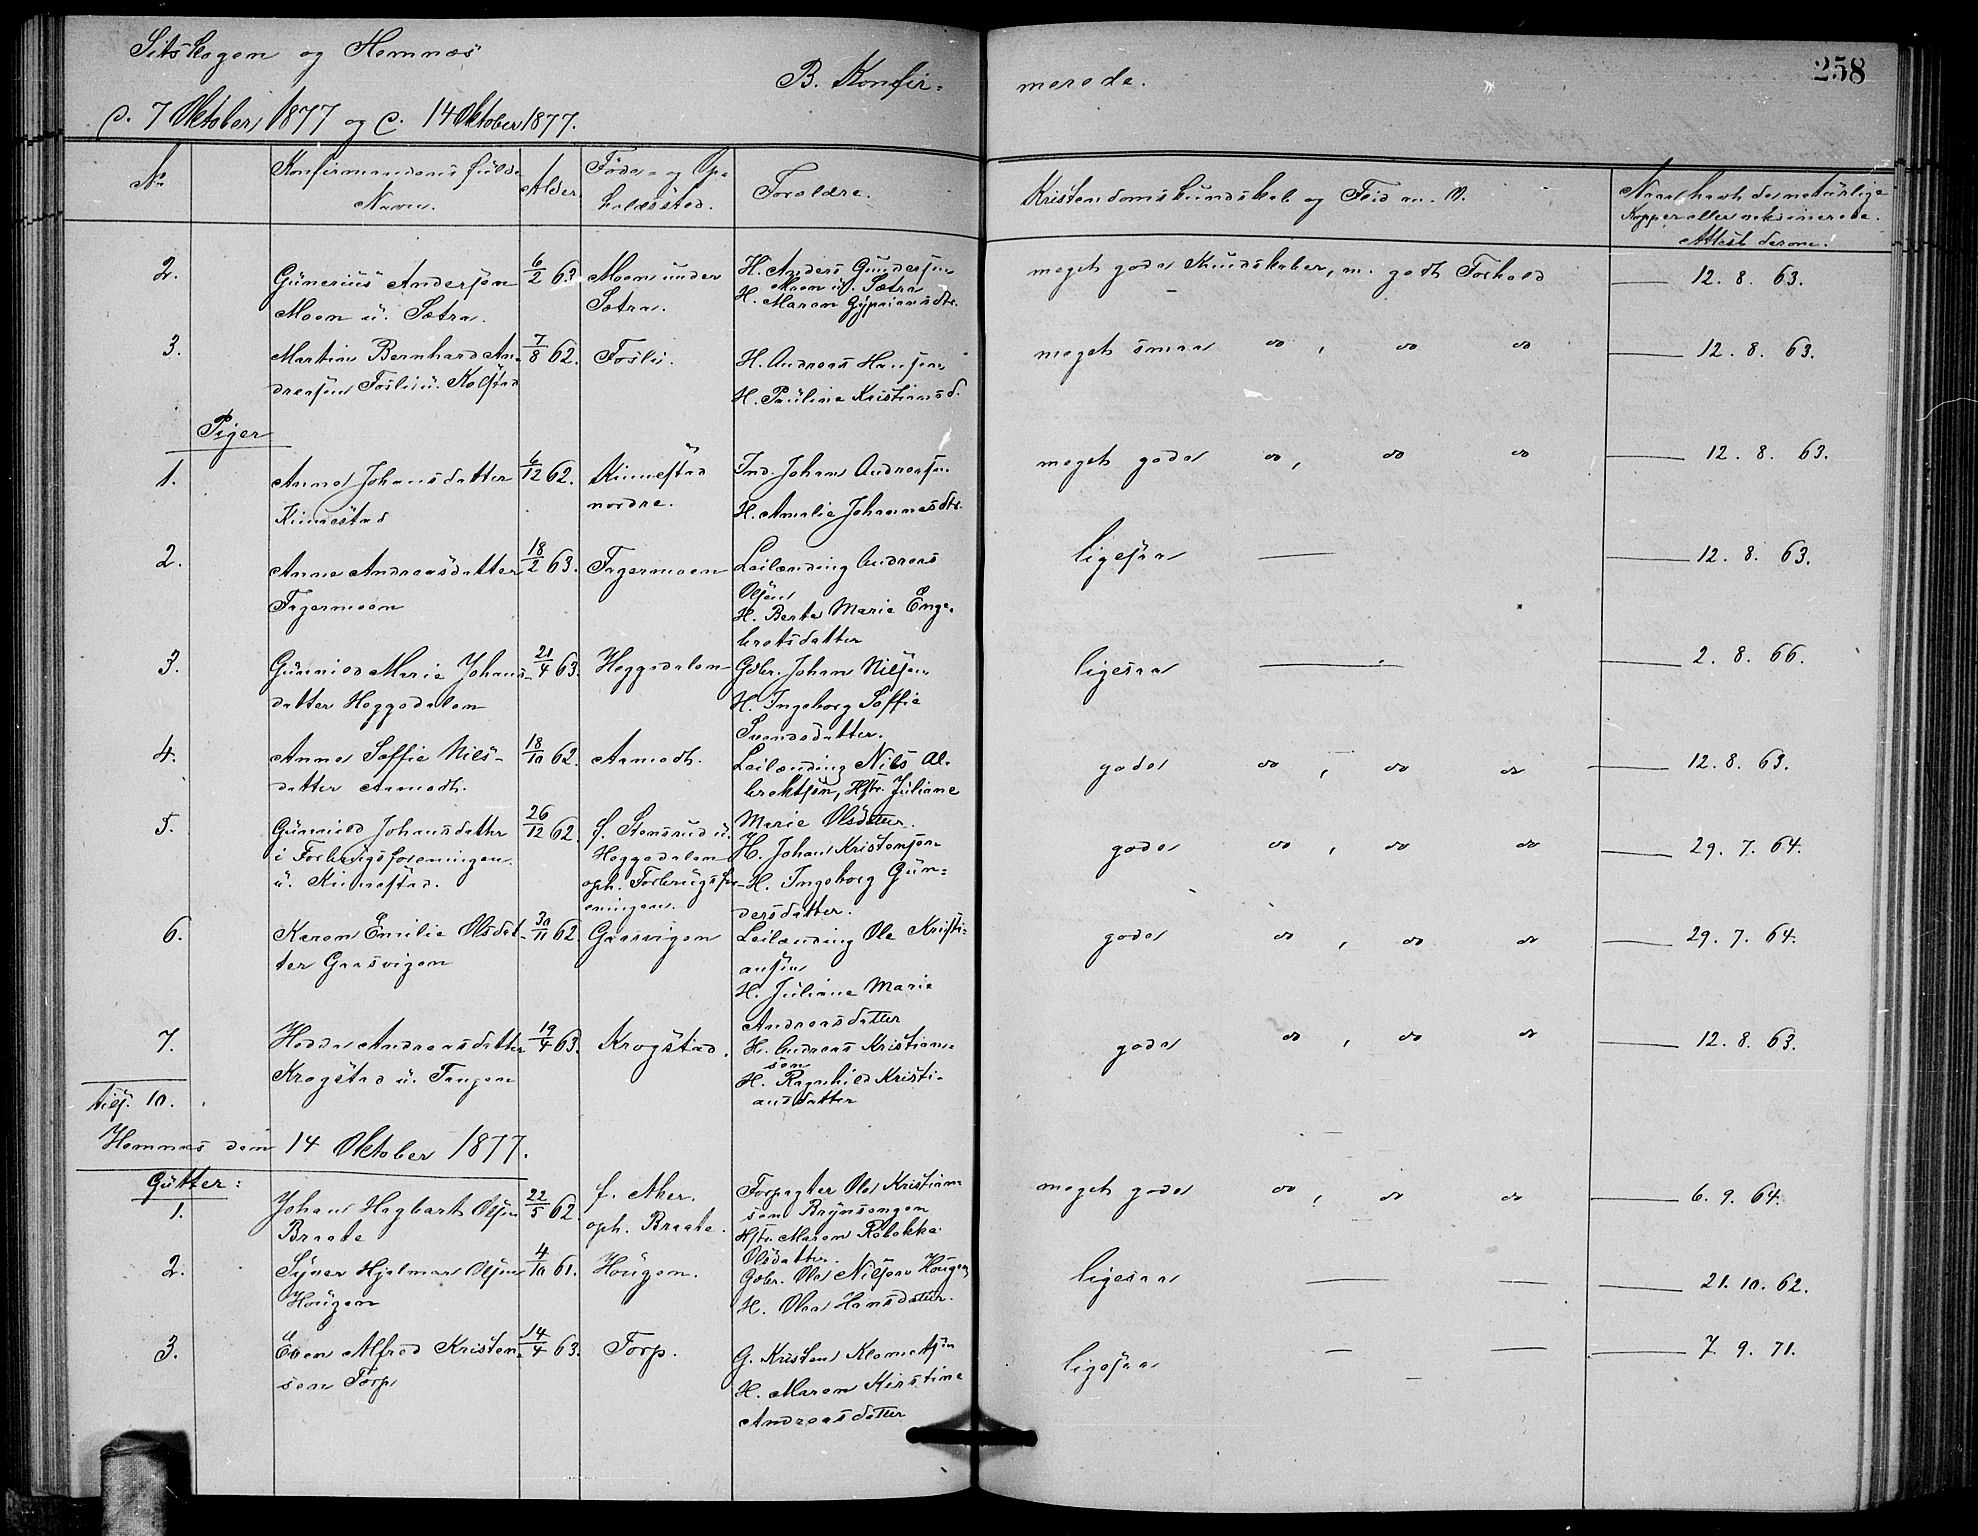 Sitskogen og Hemnæs
d. 7 Oktober 1877 og d. 14 Oktober 1877.
B. Konfir-
merede.
258
No
Konfirmandens fulde
Navn.
Alder.
Føde- og Op-
holdssted.
Forældre.
Kristendomskundskab og Flid m. V.
Naar havt de naturlige
Kopper eller vaksinerede.
Attest derom.
2.
Gunerius Andersen
Moen u. Sætra.
6/2 63
Moen under
Sætra.
H. Anders Gundersen
Moen u. Sætra
H. Maren Gypriansdtr.
meget gode Kundskaber, m. godt Forhold
12. 8. 63.
3.
Martin Bernhard An-
dreasen Foslie u. Kolstad
7/8 62.
Foslie.
H. Andreas Hansen
H. Pauline Kristiansd.
meget smaa do, do do
12. 8. 63.
Piger
1.
Anne Johansdatter
Kinnestad
6/12 62.
Kinnestad
nordre.
Ind. Johan Andreasen
H. Amalie Johannesdtr.
meget gode do, do do
12. 8. 63.
2.
Anne Andreasdatter
Fagermoen
18/2 63.
Fagermoen
Leilænding Andreas
Olsen
H. Berte Marie Enge-
bretsdatter
ligesaa
12. 8. 63.
3.
Gunnild Marie Johans-
datter Heggedalen
21/4 63.
Heggedalen
Gdbr. Johan Nilsen
H. Ingeborg Soffie
Svendsdatter.
ligesaa
2. 8. 66.
4.
Anne Soffie Nils-
datter Aamodt.
18/10 62.
Aamodt.
Leilænding Nils Al-
brektsen, Hstr. Juliane
Marie Olsdatter.
gode do, do do
12. 8. 63.
5.
Gunnild Johansdatter
i Forbrugsforeningen
u. Kinnestad.
26/12 62.
f. Stensrud u.
Heggedalen
oph. Forbrugsfor-
eningen.
H. Johan Kristensen
H. Ingeborg Gun-
dersdatter.
gode do, do do
29. 7. 64.
6.
Karen Emilie Olsdat-
ter Gaasvigen
30/11 62.
Gaasvigen
Leilænding Ole Kristi-
ansen
H. Juliane Marie
Andreasdatter
gode do, do do
29. 7. 64.
7.
Hedda Andreasdatter
Krogstad u. Tangen
19/4 63.
Krogstad.
H. Andreas Kristian-
sen
H. Ragnhild Kristi-
ansdatter
gode do, do do
12. 8. 63.
tils. 10.
Hemnæs den 14 Oktober 1877.
Gutter:
1.
Johan Hagbart Olsen
Braate
22/5 62.
f. Aker.
oph. Braate.
Forpagter Ole Kristian-
sen Brynsengen
Hstr. Maren Rebekka
Olsdatter.
meget gode do, do do
6. 9. 64.
2.
Syver Hjalmar Olsen
Hougen
4/10 61.
Hougen.
Gdbr. Ole Nilsen Hougen
H. Olea Hansdatter.
ligesaa
21. 10. 62.
3.
Even Alfred Kristen-
sen Torp
14/4 63.
Torp.
G. Kristen Klemetsen
H. Maren Kirstine
Andreasdatter
ligesaa
7. 9. 71.